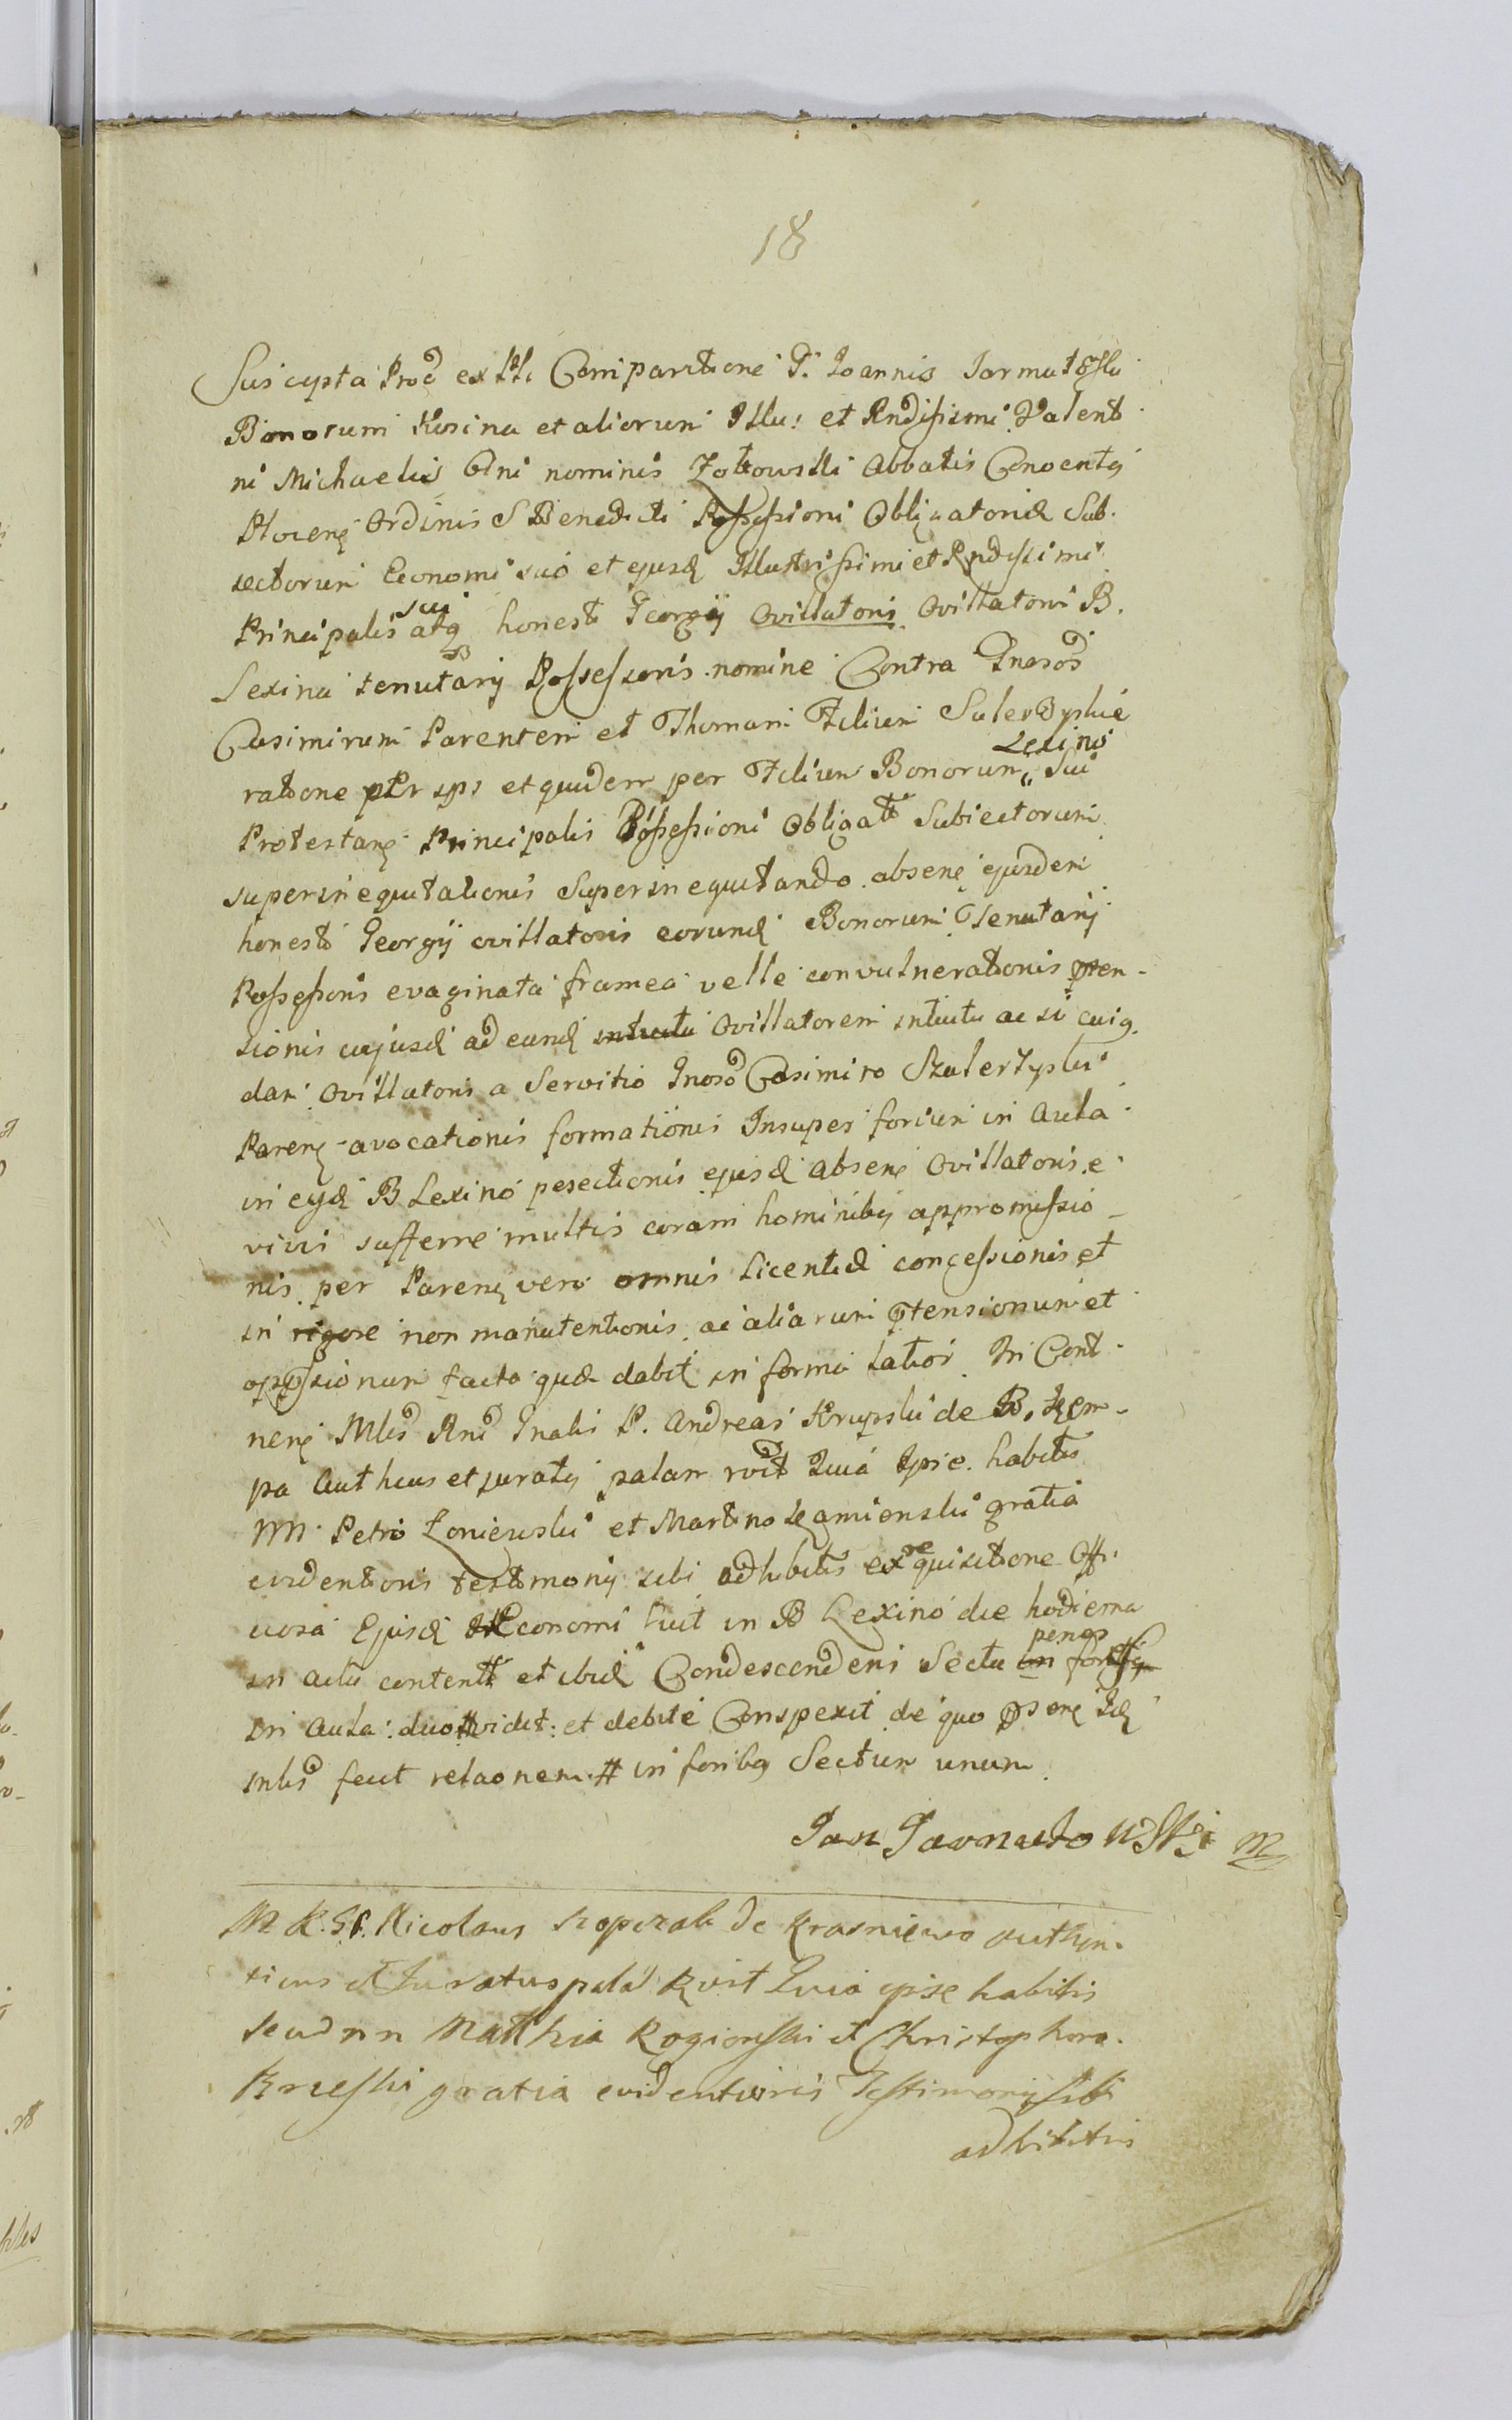 18
Suscepta Proć ex Comparitione G. Joannis Jarmutoski
Bonorum Kosina et aliorum Illu: et Rndissimi Valent
ni Michaelis bni nominis Zotkowski Abbatis Conventq
Plocenę Ordinis S Benedicti Possessioni Obligatoriæ Sub.
sectorum Economi suo et ejusd Illustrissimi et Rndissimi
Principalis sui atq honest Georgij Ovillatoris Ovillatoni B.
Lexina tenutarij Possessoris nomine Contra Gnosos
Casimirum Parentem et Thomam Filium Sulerzyskie
ratione ptr sps et quidem per Filium Bonorum Lexino Sui
Protestanę Principalis Possessioni Obligatt Subiectorum
superinequitationis Superinequitando absenę ejusdem
honesti Georgij ovillatoris eorund Bonorum Tenutarij
Possessoris evaginata framea velle convulnerationis pten-
sionis cujusd ad eund intuitu Ovillatorem intuitu ac si cuiq.
dam Ovillatoris a Servitio Gnoso Casimiro Szulerzyski
Parenę avocationis formationis Insuper forium in Aula
in eijsd B Lexino pesectionis ejusd absenę Ovillatoris e
vivi sufferre multis coram hominibq appromissio-
nis per Parenę vero omnis licentiæ concessionis et
in rigore non manutentionis ac aliarum ptensionum et
oppsionum facta quæ dabit in forma latiori In Cont-
nenę Mlis Rnd Gnalis P. Andreas Krupski de B. Kęm-
pa Authcus et juratq palam rvit Quia Ipse habitis
NN. Petro Loniewski et Martino Kęmienski gratia
evidentioris testimonij sibi adhibitis ex requisitione Offi
ciosa Ejusd Economi fuit in B Lexino die hodierna
in actu contentt et ibid Condescendens Sectu in penes foribq
in Aula: duo # vidit: et debite Conspexit de quo psenę Id
inlis fecit relaonem # in foribq Sectum unum
Jan Jarmutowski mp
M R.G. Nicolaus Szopczak de Krasniewo authen-
ticus et Juratus pala Rvit Quia ipse habitis
secu nn Matthia Rogionski et Christophoro
Brzeski gratia evidentioris Testimonij sibi
adhibitis